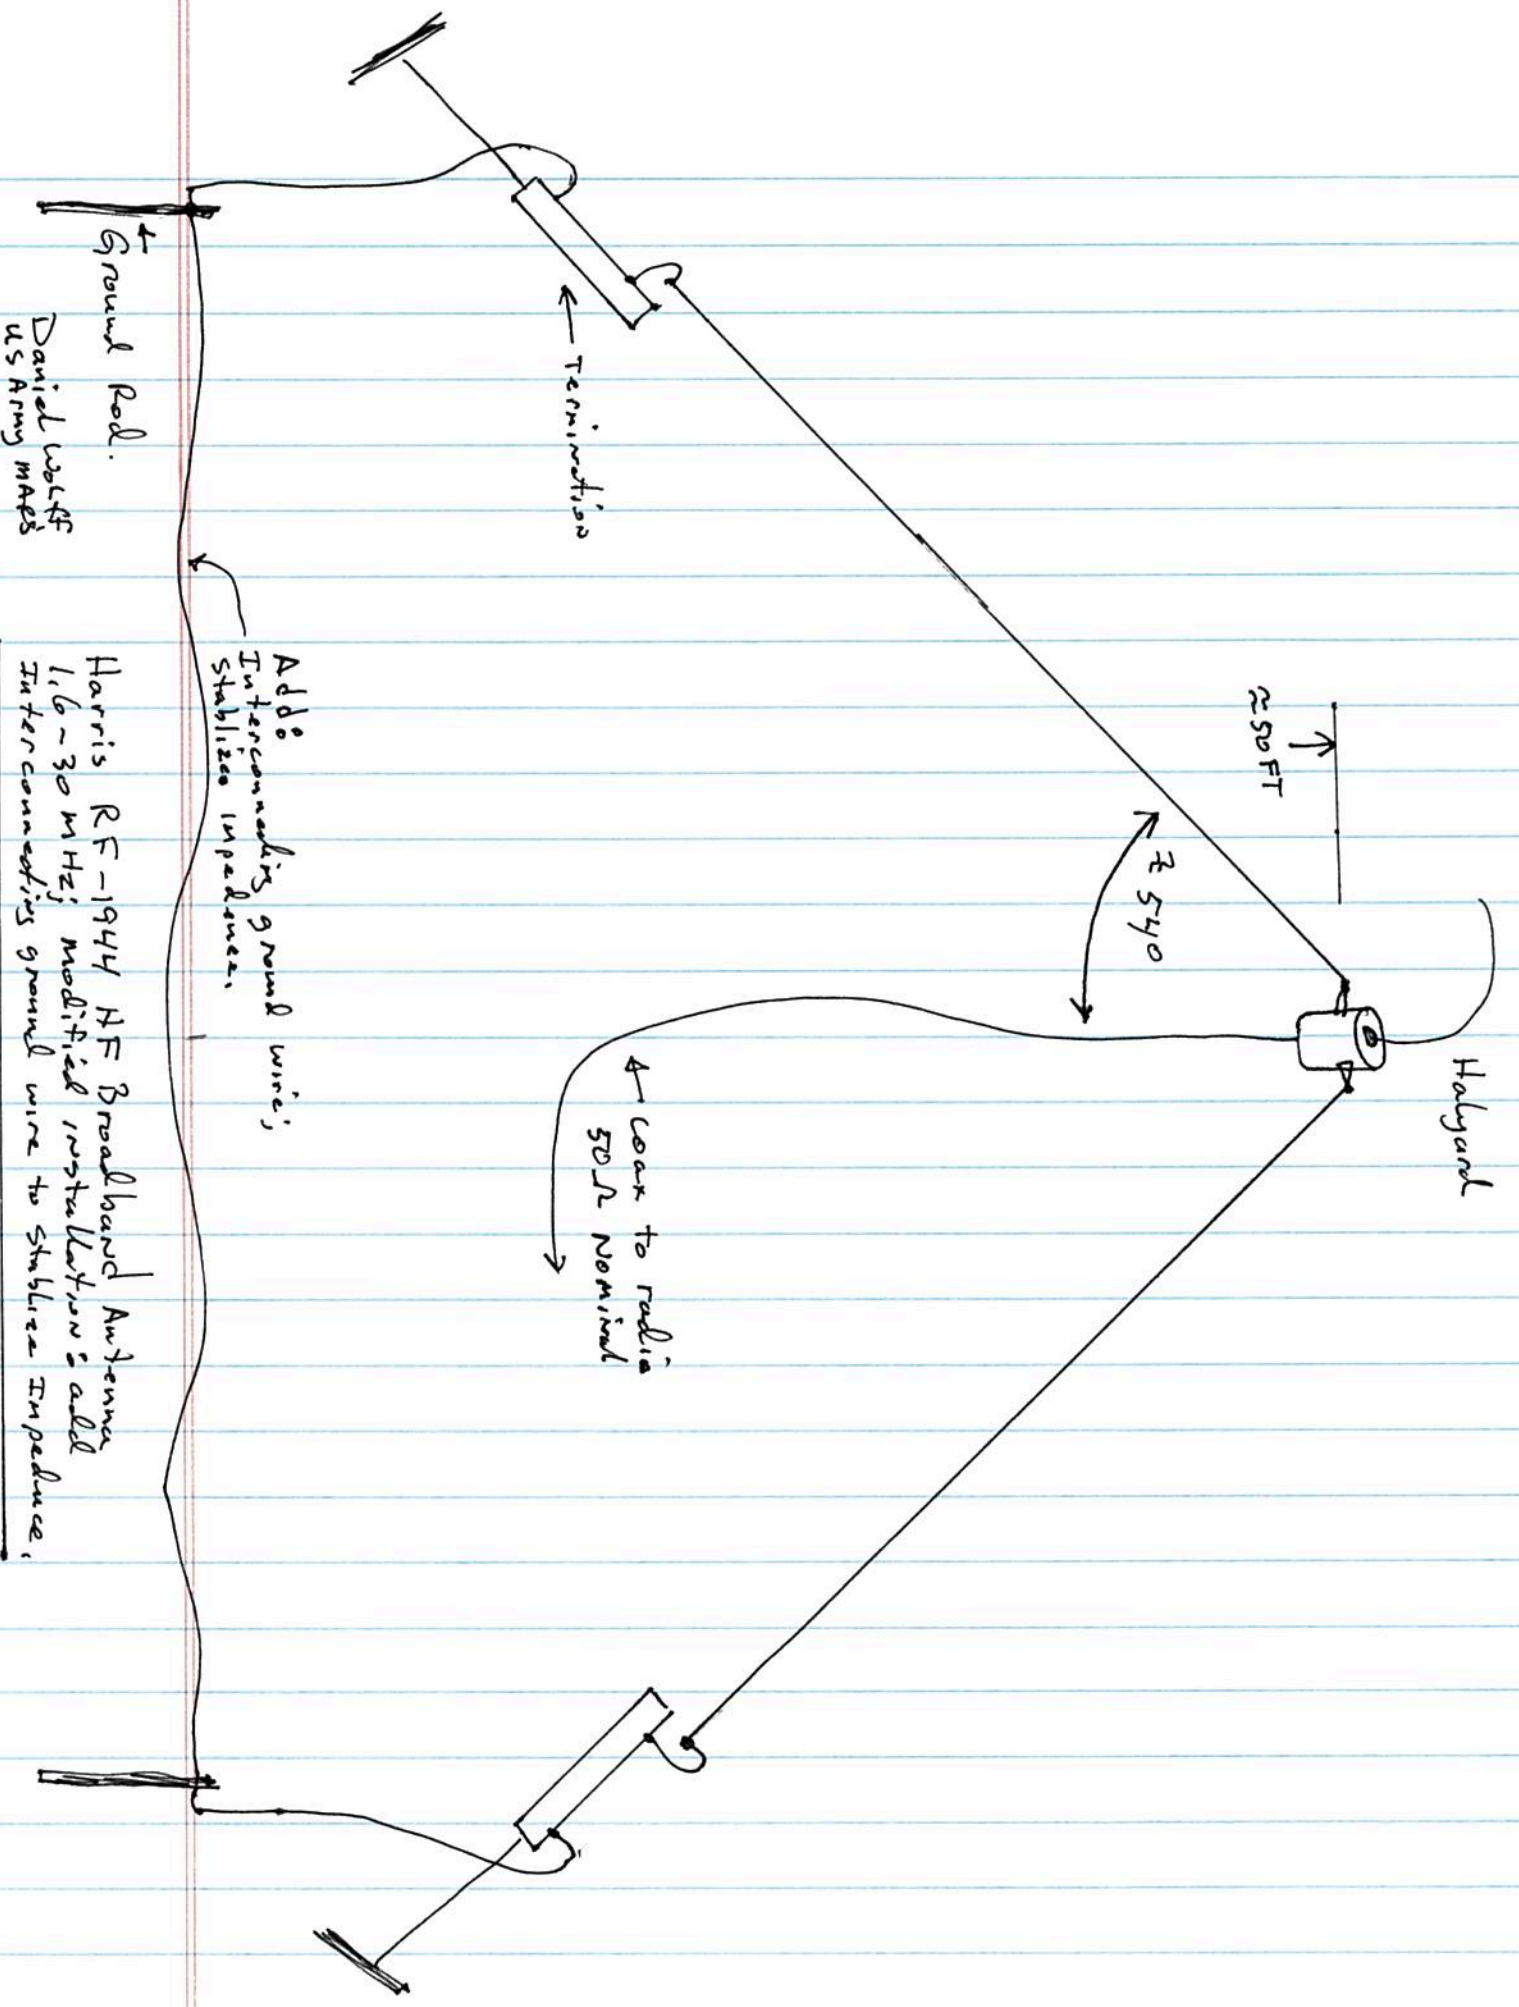 Halyard
≈50 FT
∠ 540
← coax to radio
50Ω Nominal
← Termination
Add:
Interconnecting ground wire;
stablizes impedance.
← Ground Rod.
Harris RF-1944 HF Broadband Antenna
1.6~30 MHz; modified installation: add
Interconnecting ground wire to stablize Impedance.
Daniel Wolff
US Army MARS